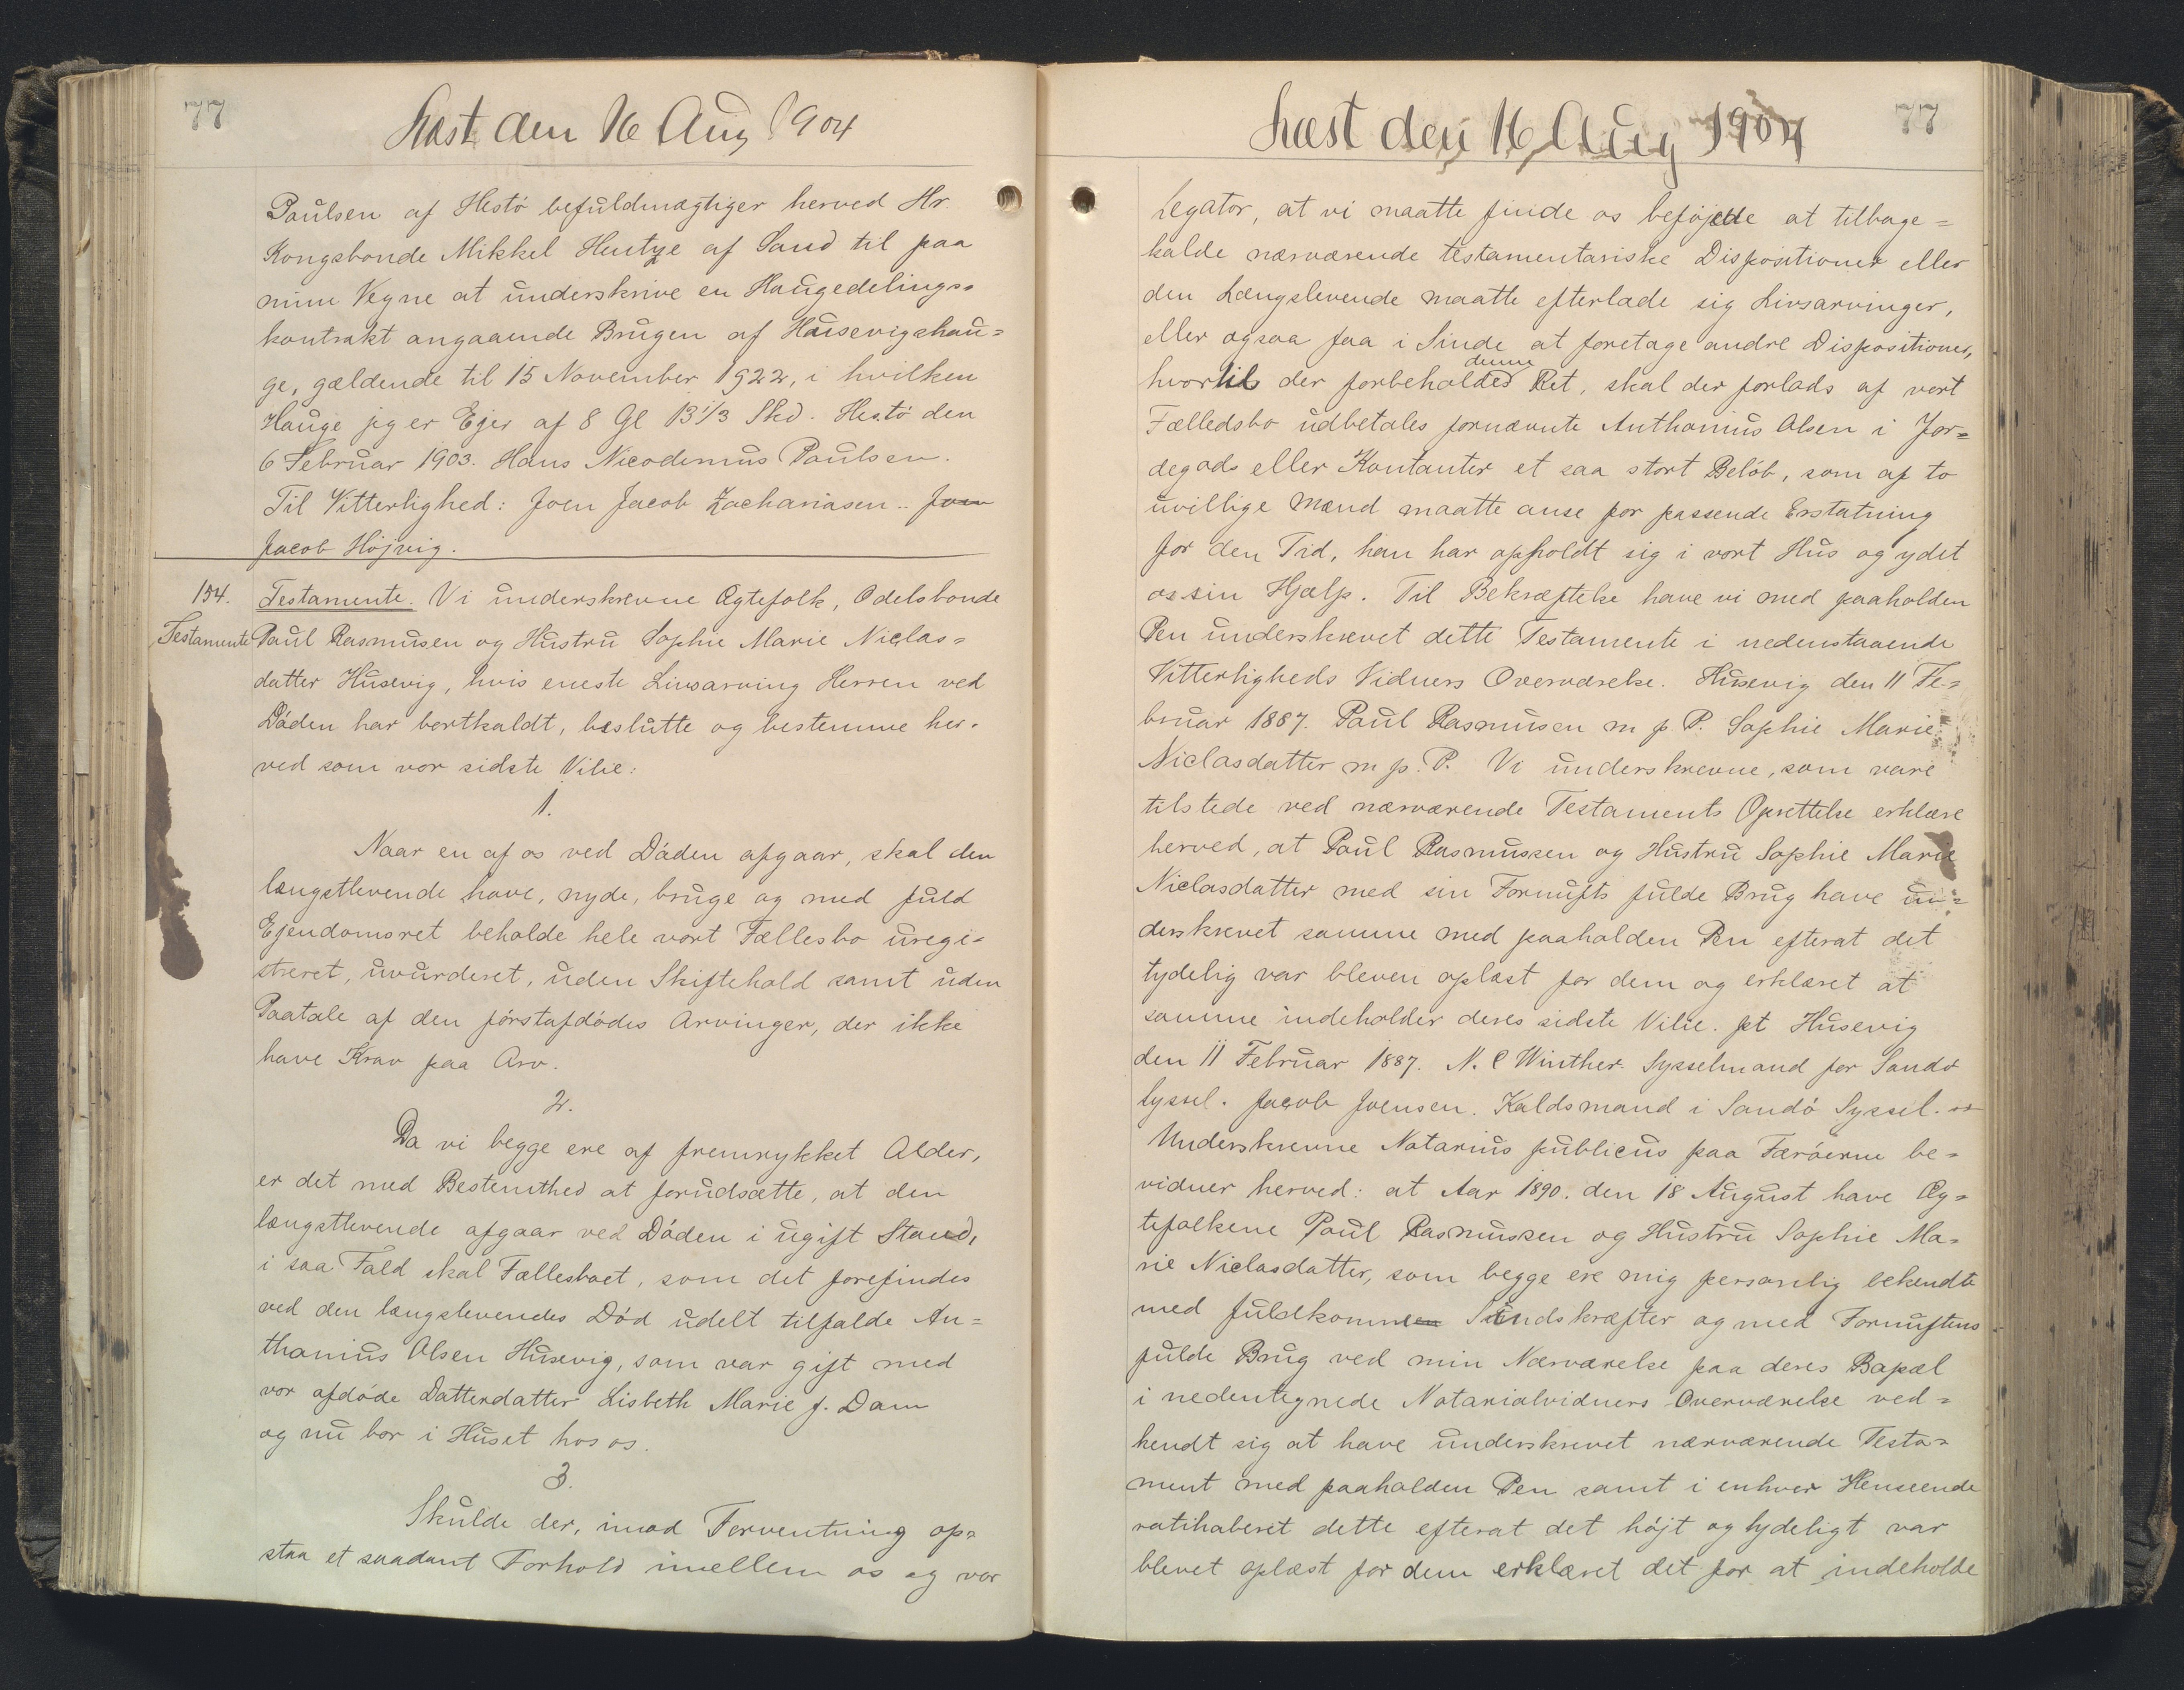 77
Læst den 16 Aug 1904
Paulsen af Hestö befuldmægtiger herved Hr.
Kongsbonde Mikkel Hentze af Sand til paa
mine Vegne at underskrive en Haugedelings=
kontrakt angaaende Brugen af Husevigshau=
ge, gældende til 15 November 1922, i hvilken
Hauge jeg er Ejer af 8 Gl 13 1/3 Skd. Hestö den
6 Februar 1903. Hans Nicodemus Paulsen.
Til Vitterlighed: Joen Jacob Zachariasen .. Joen
Jacob Höjvig.
154. Testamente. Vi underskrevne Ægtefolk, Odelsbonde
Testamente Paul Rasmusen og Hustru Sophie Marie Niclas=
datter Husevig, hvis eneste Livsarving Herren ved
Döden har bortkaldt, beslutte og bestemme her=
ved som vor sidste Vilie:
1.
Naar en af os ved Döden afgaar, skal den
længstlevende have, nyde, bruge og med fuld
Ejendomsret beholde hele vort Fællesbo uregi=
streret, uvurderet, uden Skiftehold samt uden
Paatale af den förstafdödes Arvinger, der ikke
have Krav paa Arv.
2.
Da vi begge ere af fremrykket Alder,
er det med Bestemthed at forudsætte, at den
længstlevende afgaar ved Döden i ugift Stand,
i saa Fald skal Fællesboet, som det forefindes
ved den længslevendes Död udelt tilfalde An=
thonius Olsen Husevig, som var gift med
vor afdöde Datterdatter Lisbeth Marie f. Dam
og nu bor i Huset hos os.
3.
Skulde der, imod Forventning op=
staa et saadant Forhold imellem os og vor
Læst den 16 Aug 1904
77
Legator, at vi maatte finde os beföjede at tilbage=
kalde nærværende testamentariske Dispositioner eller
den Længslevende maatte efterlade sig Livsarvinger,
eller ogsaa faa i Sinde at foretage andre Dispositioner,
denne
hvortil der forbeholdes Ret, skal der forlods af vort
Fælledsbo udbetales fornævnte Anthonius Olsen i Jor=
degods eller Kontanter et saa stort Belöb, som af to
uvillige Mænd maatte anse for passende Erstatning
for den Tid, han har opholdt sig i vort Hus og ydet
os sin Hjælp. Til Bekræftelse have vi med paaholden
Pen underskrevet dette Testamente i nedenstaaende
Vitterligheds Vidners Overværelse. Husevig den 11 Fe=
bruar 1887. Paul Rasmusen m p P. Sophie Marie
Niclasdatter m p. P. Vi underskrevne, som vare
tilstede ved nærværende Testaments Oprettelse erklære
herved, at Paul Rasmussen og Hustru Sophie Marie
Niclasdatter med sin Fornufts fulde Brug have un=
derskrevet samme med paaholden Pen efterat det
tydelig var bleven oplæst for dem og erklæret at
samme indeholder deres sidste Vilie. pt Husevig
den 11 Februar 1887. N. C Winther. Sysselmand for Sandö
Syssel. Jacob Joensen. Kaldsmand i Sandö Syssel.
Underskrevne Notarius publicus paa Færöerne be=
vidner herved: at Aar 1890. den 18 August have Æg=
tefolkene Paul Rasmussen og Hustru Sophie Ma=
rie Niclasdatter, som begge ere mig personlig bekendte
med fuldkommen Sindskræfter og med Fornuftens
fulde Brug ved min Nærværelse paa deres Bopæl
i nedentegnede Notarialvidners Overværelse ved=
kendt sig at have underskrevet nærværende Testa=
ment med paaholden Pen samt i enhver Henseende
ratihaberet dette efterat det höjt og tydeligt var
blevet oplæst for dem erklæret det for at indeholde